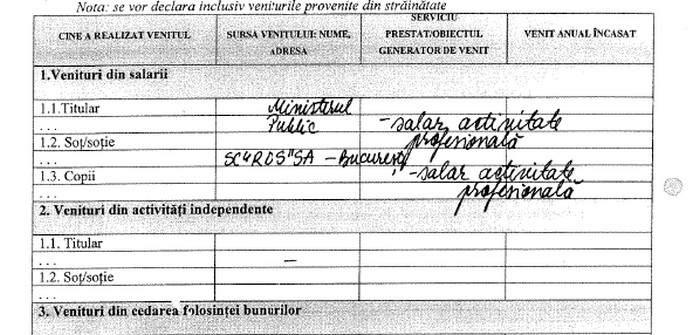 Nota: se vor declara inclusiv veniturile provenite din străinătate
CINE A REALIZAT VENITUL
SURSA VENITULUI: NUME,
ADRESA
SERVICIU
PRESTAT/OBIECTUL
GENERATOR DE VENIT
VENIT ANUAL ÎNCASAT
1.Venituri din salarii
1.1.Titular
Ministerul
. . .
Public
- salar activitate
1.2. Soț/soție
profesională
. . .
SA - București
1.3. Copii
- salar activitate
. . .
profesională
2. Venituri din activități independente
1.1. Titular
. . .
—
1.2. Soț/soție
. . .
3. Venituri din cedarea folosinței bunurilor